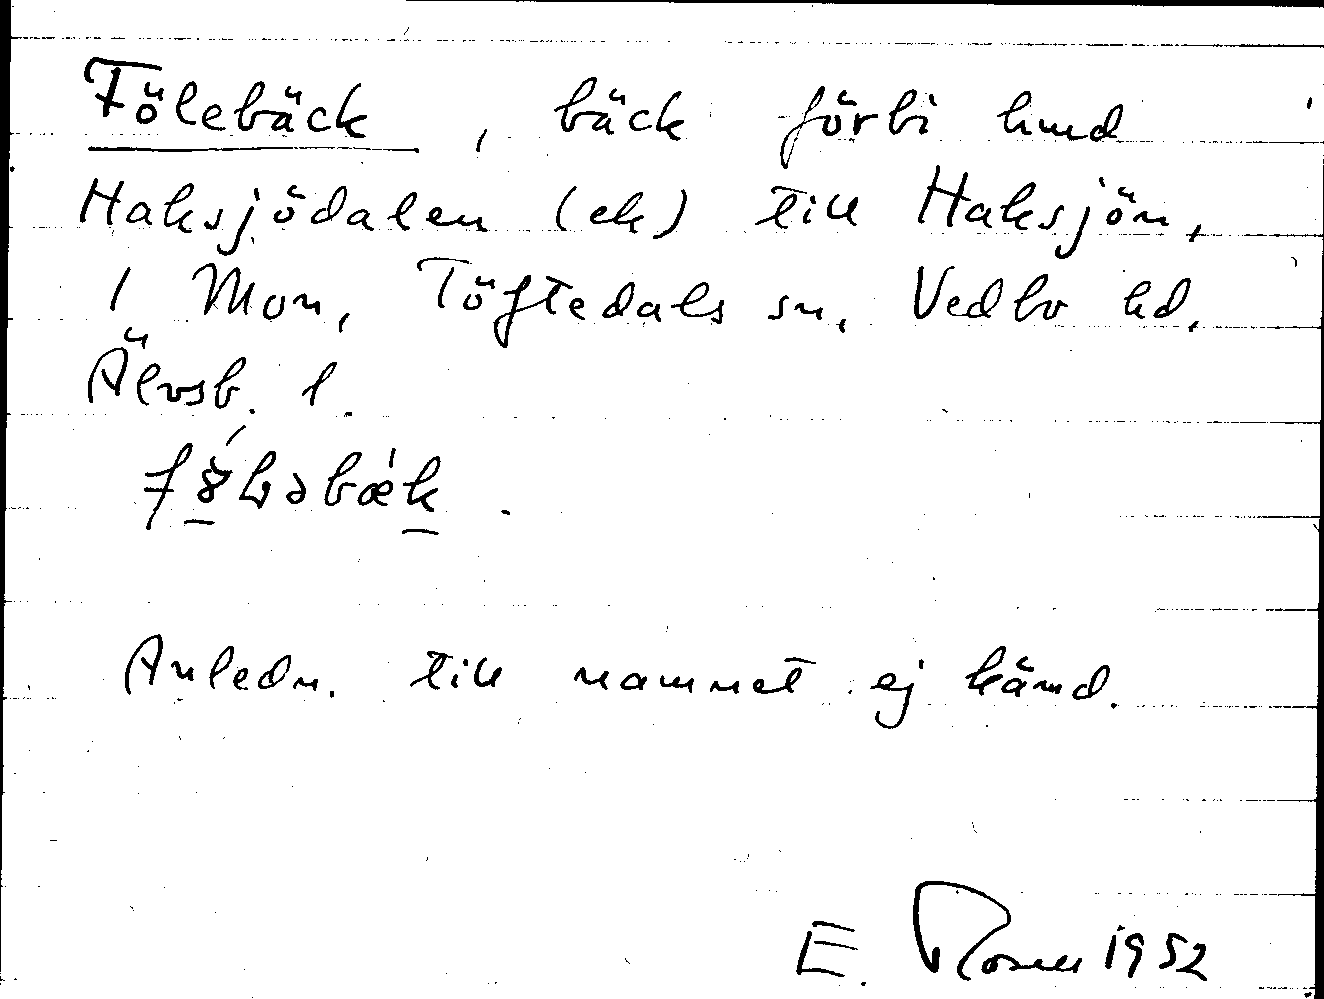 Fölebäck, bäck förbi hmd
Haksjödalen (ek) till Haksjön,
1 Mon, Töftedals sn, Vedbo hd,
Älvsb. l.
Anledn. till namnet ej känd.
E. Rosell 1952